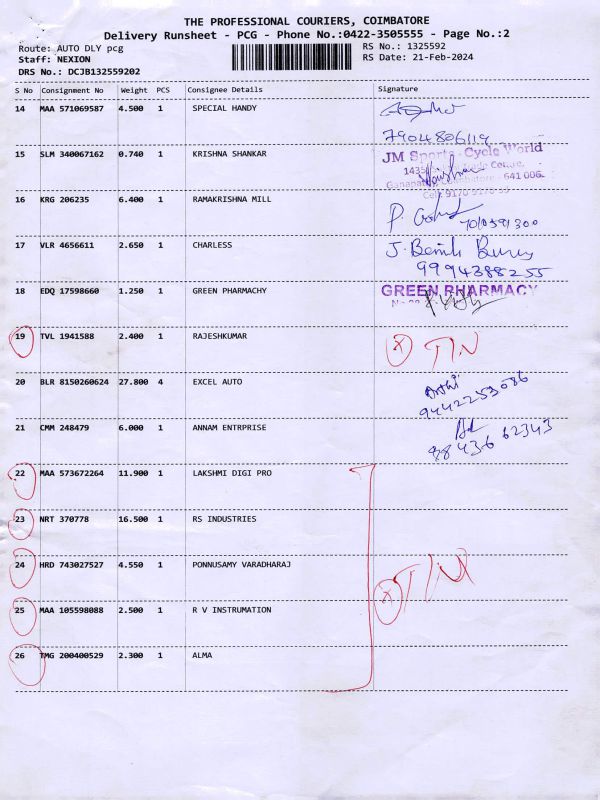 THE PROFESSIONAL COURIERS, COIMBATORE
Delivery Runsheet - PCG - Phone No.:0422-3505555 - Page No.:2
Route: AUTO DLY pcg RS No.: 1325592
Staff: NEXION RS Date: 21-Feb-2024
DRS No.: DCJB132559202
S No Consignment No Weight PCS Consignee Details Signature
14 MAA 571069587 4.500 1 SPECIAL HANDY
7904806119
15 SLM 340067162 0.740 1 KRISHNA SHANKAR JM Sports - Cycle World
Trade Centre,
641 006.
16 KRG 206235 6.400 1 RAMAKRISHNA MILL P.
17 VLR 4656611 2.650 1 CHARLESS J.
9994388255
18 EDQ 17598660 1.250 1 GREEN PHARMACHY GREEN PHARMACY
19 TVL 1941588 2.400 1 RAJESHKUMAR X TIN
20 BLR 8150260624 27.800 4 EXCEL AUTO
9442253086
21 CMM 248479 6.000 1 ANNAM ENTRPRISE
98436 62343
22 MAA 573672264 11.900 1 LAKSHMI DIGI PRO
23 NRT 370778 16.500 1 RS INDUSTRIES
24 HRD 743027527 4.550 1 PONNUSAMY VARADHARAJ X TIN
25 MAA 105598088 2.500 1 R V INSTRUMATION
26 TMG 200400529 2.300 1 ALMA